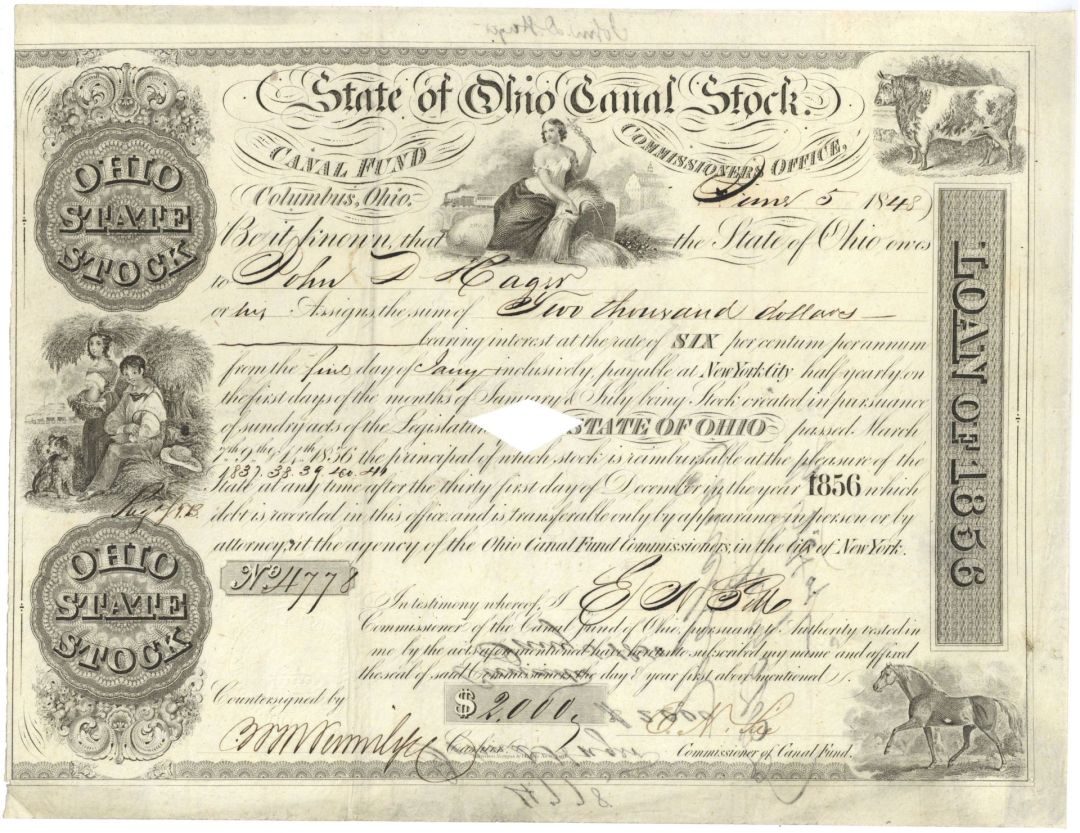 State of Ohio Canal Stock.
CANAL FUND
COMMISSIONERS OFFICE,
Columbus, Ohio.
June 5 1848
Be it known, that the State of Ohio owes
to John D Hager
or his Assigns, the sum of Two thousand dollars
bearing interest at the rate of SIX per centum per annum
from the five day of inclusively, payable at New York City half yearly, on
the first days of the months of January & July being Stock created in pursuance
of sundry acts of the Legislature STATE OF OHIO passed March
1837. 38. 39 40 the principal of which stock is reimbursable at the pleasure of the
State at any time after the thirty first day of December in the year 1856 which
debt is recorded in this office and is transferable only by appearance in person or by
attorney, at the agency of the Ohio Canal Fund Commissioners, in the City of New York.
No 4778
In testimony whereof, I
Commissioner of the Canal fund of Ohio, pursuant to Authority vested in
me by the acts mentioned have hereunto subscribed my name and affixed
the seal of said the day & year first above mentioned.
Countersigned by
$2,000
Cashier.
Commissioner of Canal Fund.
OHIO
STATE
STOCK
OHIO
STATE
STOCK
LOAN OF 1856